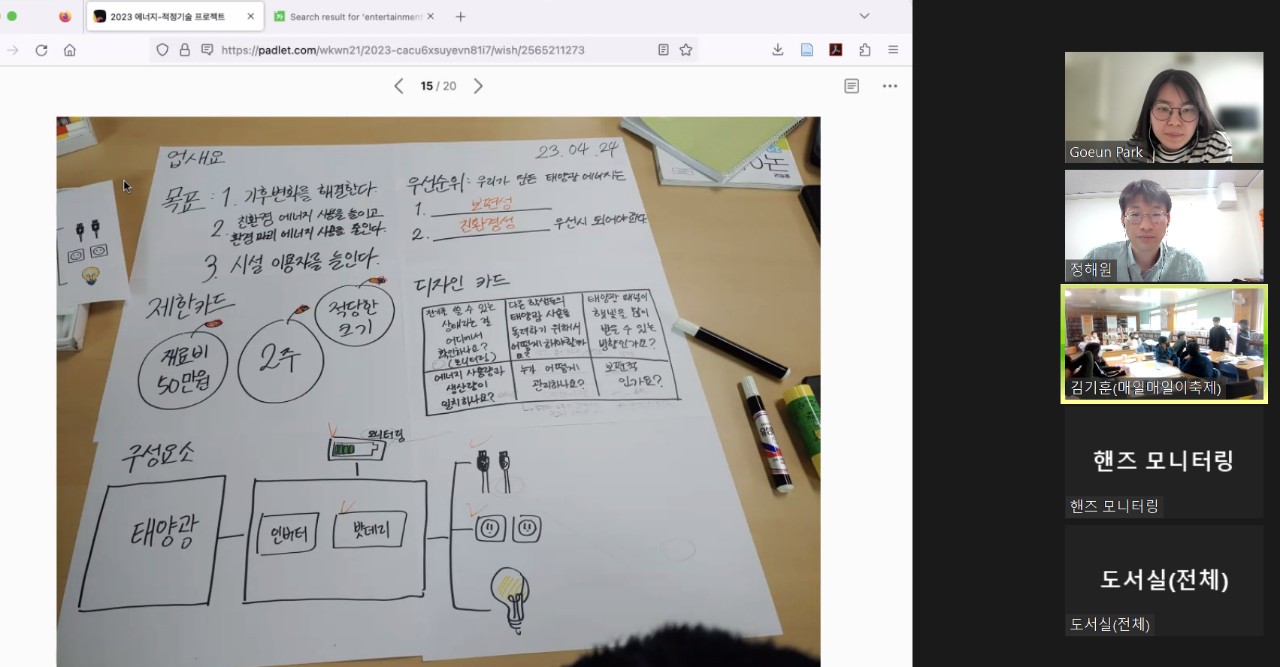 2023 에너지-적정기술 프로젝트
Search result for 'entertainment
https://padlet.com/wkwn21/2023-cacu6xsuyevn81i7/wish/2565211273
15 / 20
업새요
23.04.24
목표: 1. 기후변화를 해결한다
2. 친환경 에너지 사용을 높이고
환경파괴 에너지 사용을 줄인다.
3. 시설 이용자를 늘인다.
우선순위: 우리가 만든 태양광 에너지는
1. 보편성
2. 친환경성 우선시 되어야한다
제한카드
재료비
50만원
2주
적당한
크기
디자인 카드
전기를 쓸 수 있는
상태라는 걸
어디에서
확인하나요?
(모니터링)
다른 학생들의
태양광 사용을
독려하기 위해서
어떻게 해야할까
요?
태양광 패널이
햇빛을 많이
받을 수 있는
방향인가요?
에너지 사용량과
생산량이
일치하나요?
누가 어떻게
관리하나요?
보편적
인가요?
구성요소
모니터링
태양광
인버터
밧데리
Goeun Park
정해원
김기훈(매일매일이축제)
핸즈 모니터링
핸즈 모니터링
도서실(전체)
도서실(전체)